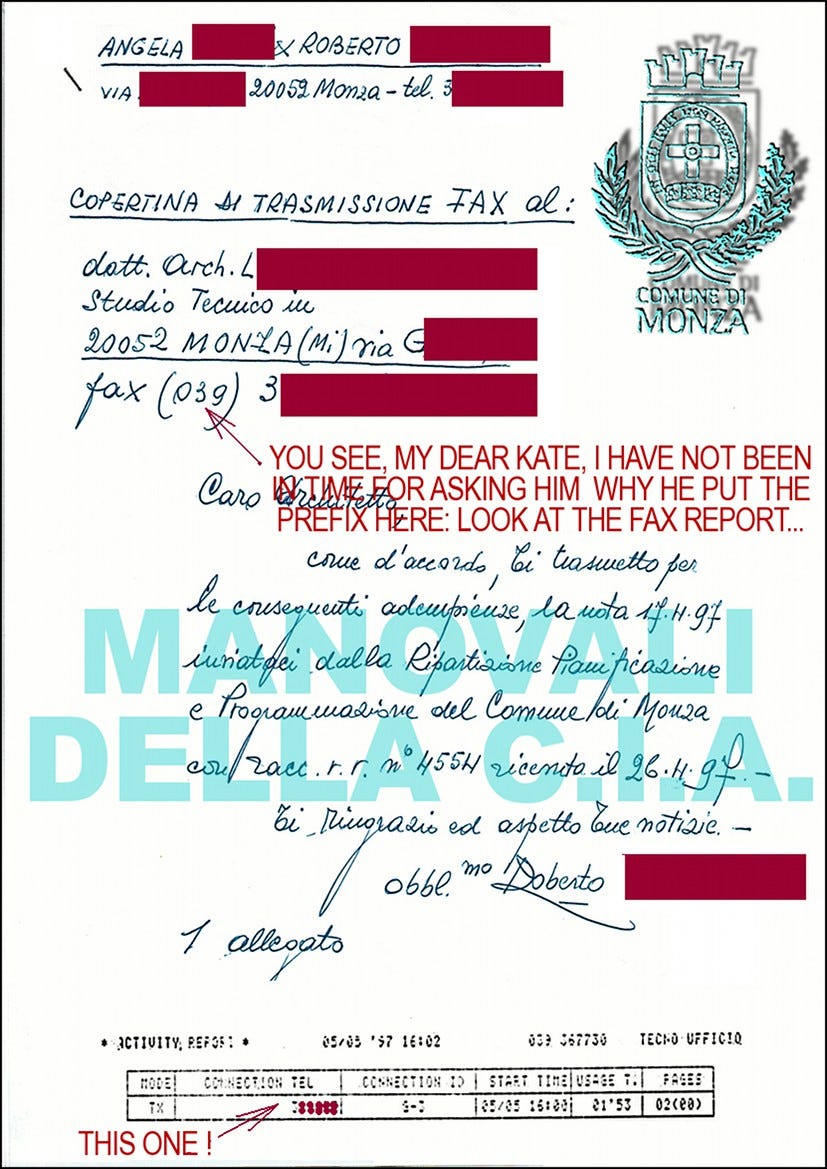 ANGELA & ROBERTO
VIA 20052 Monza - tel. 3
COMUNE DI
MONZA
COPERTINA DI TRASMISSIONE FAX al:
dott. Arch. L
Studio Tecnico in
20052 MONZA (Mi) via G
fax (039) 3
YOU SEE, MY DEAR KATE, I HAVE NOT BEEN
IN TIME FOR ASKING HIM WHY HE PUT THE
PREFIX HERE: LOOK AT THE FAX REPORT...
Caro Architetto,
come d'accordo, Ti trasmetto per
le conseguenti adempienze, la nota 17.4.97
inviataci dalla Ripartizione Pianificazione
e Programmazione del Comune di Monza
con racc. r.r. n° 4554 ricevuta il 26.4.97.-
MANOVALI
DELLA C.I.A.
Ti ringrazio ed aspetto Tue notizie. -
obbl.mo Roberto
1 allegato
* ACTIVITY REPORT * 05/05 '97 16:02 039 367730 TECNO UFFICIO
MODE CONNECTION TEL CONNECTION ID START TIME USAGE T. PAGES
TX 3 G-3 05/05 16:00 01'53 02(00)
THIS ONE !